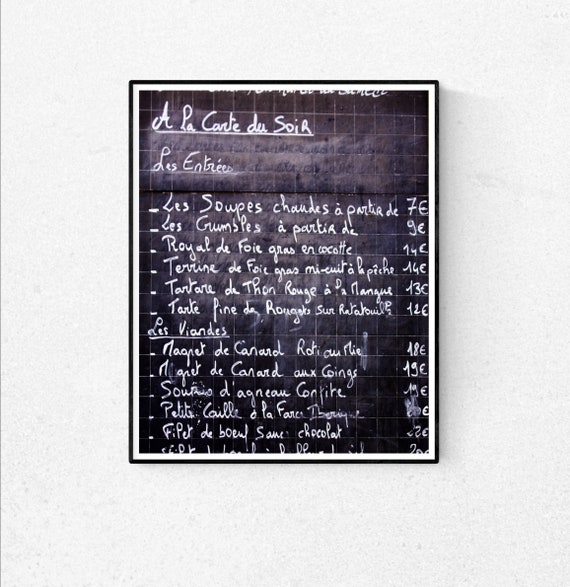 A la Carte du Soir
Les Entrées
- Les Soupes chaudes à partir de 7€
- Les Crumbles à partir de 9€
- Royal de Foie gras en cocotte 14€
- Terrine de Foie gras mi-cuit à la pêche 14€
- Tartare de Thon Rouge à la Mangue 13€
- Tarte fine de Rougets sur Ratatouille 12€
Les Viandes
- Magret de Canard Roti au Miel 18€
- Magret de Canard aux Coings 19€
- Souris d'agneau Confite 19€
- Petite Caille à la Farce Iberique
- Filet de boeuf sauce chocolat 22€